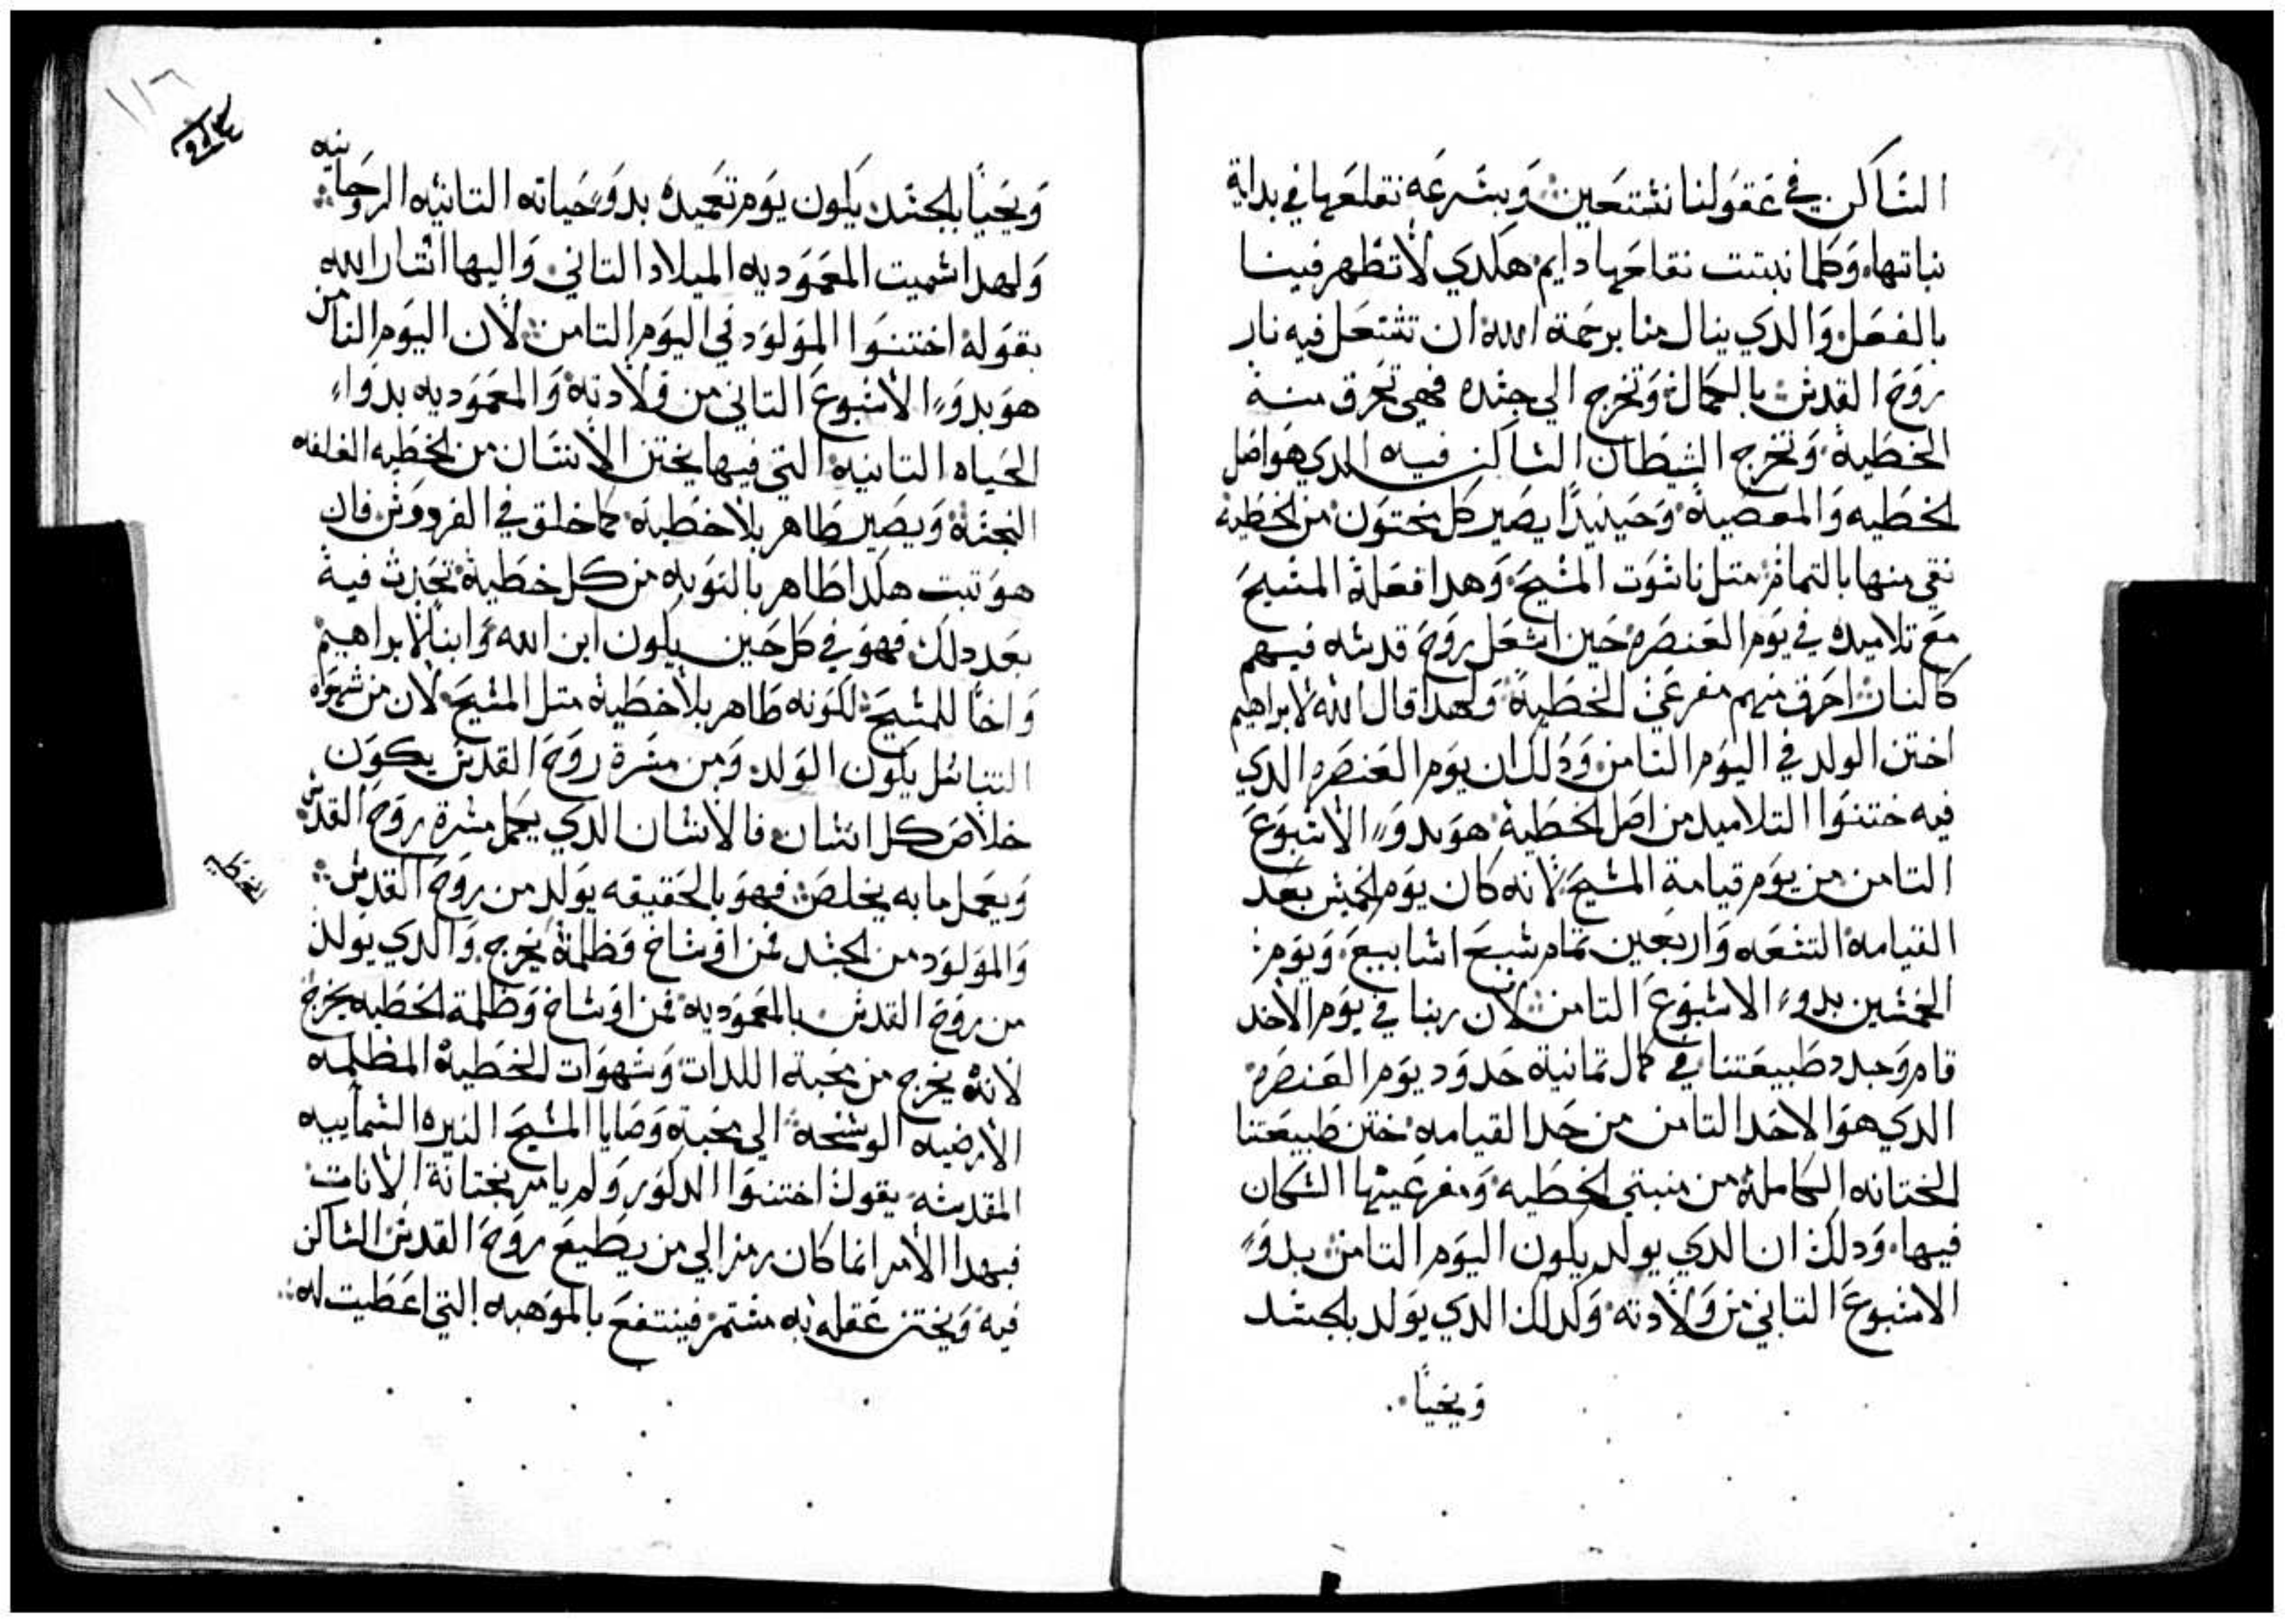 الساكن في عقولنا نستعين وبسرعه نقلعها في بداية
نباتها وكلما نبتت نقلعها دايم هكدي لا تظهر فينا
بالفعل والدي ينال منا برحمة الله ان تشتعل فيه نار
روح القدس بالكمال وتخرج الي جسده فهي تحرق منه
الخطية وتخرج الشيطان الساكن فيه الدي هو اصل
الخطيه والمعصية وحينيدا يصير كل مختون من الخطية
نقي منها بالتمام متل ناسوت المسيح وهدا فعله المسيح
مع تلاميده في يوم العنصره حين اشعل روح قدسه فيهم
كالنار احرق منهم مفرعي الخطية ولهدا قال الله لابراهيم
اختن الولد في اليوم التامن ودلك ان يوم العنصره الدي
فيه ختنوا التلاميد من اصل الخطية هو بدوء الاسبوع
التامن من يوم قيامة المسيح لانه كان يوم الخمسين بعد
القيامة التسعه واربعين تمام سبع اسابيع ويوم
الخمسين بدوء الاسبوع التامن لان ربنا في يوم الاحد
قام وجدد طبيعتنا في كمال تمانية حدود يوم العنصره
الدي هو الاحد التامن من حد القيامه ختن طبيعتنا
الختانه الكاملة من منبتي الخطيه ومفرعيتها السكان
فيها ودلك ان الدي يولد يكون اليوم التامن بدوء
الاسبوع التاني من ولادته وكدلك الدي يولد بالجسد
ويحيا
١١٦
ويحيا بالجسد يكون يوم تعميده بدو حياته التانيه الروحانيه
ولهدا سميت المعموديه الميلاد التاني واليها اشار الله
بقوله اختنوا المولود في اليوم التامن لان اليوم التامن
هو بدوء الاسبوع التاني من ولادته والمعموديه بدواء
الحياه التانيه التي فيها يختن الانسان من الخطيه الغلفه
النجسة ويصير طاهر بلا خطية كما خلق في الفردوس فان
هو تبت هكدا طاهر بالتوبه من كل خطية تحدث فيه
بعد دلك فهو في كل حين يكون ابن الله وابنا لابراهيم
واخا للمسيح لكونه طاهر بلا خطية متل المسيح لان من شهواه
التناسل يكون الولد ومن مسرة روح القدس يكون
خلاص كل انسان فالانسان الدي يحمل مسرة روح القدس
ويعمل ما به يخلص فهو بالحقيقه يولد من روح القدس
والمولود من الجسد فمن اوساخ وظلمة يخرج والدي يولد
من روح القدس بالمعمودية فمن اوساخ وظلمة الخطيه يخرج
لانه يخرج من محبة اللدات وشهوات الخطية المظلمه
الارضيه الوسخة الي محبة وصايا المسيح النيره السماييه
المقدسه يقول اختنوا الدكور ولم يامر بختانة الانات
فبهدا الامر انما كان رمز الي من يطيع روح القدس الساكن
فيه ويختن عقله به مستمر فينتفع بالموهبه التي اعطيت له